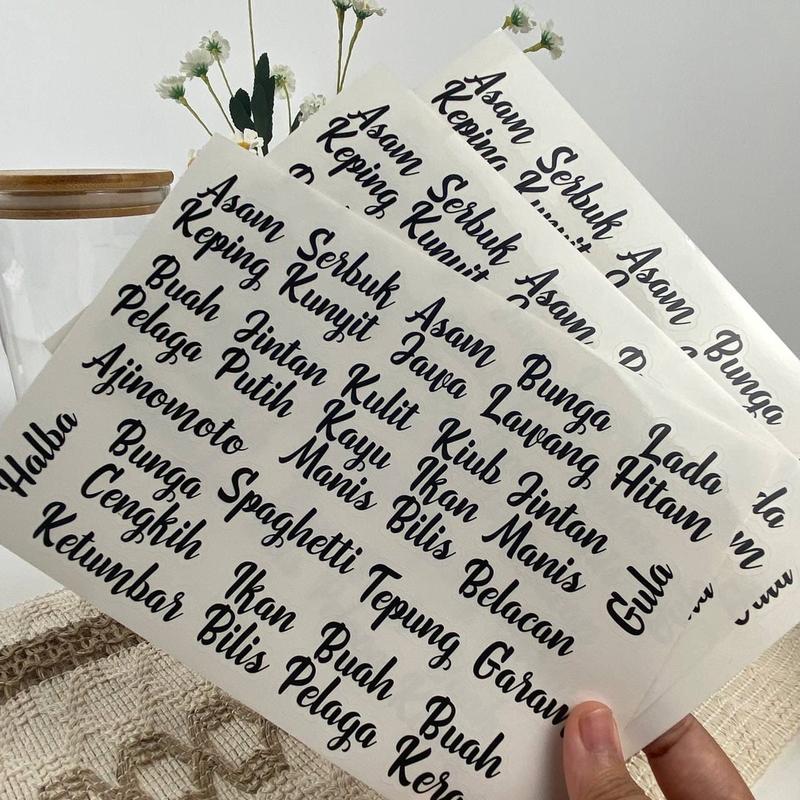 Asam Serbuk Asam Bunga
Keping Kunyit
Asam Serbuk Asam
Keping Kunyit
Asam Serbuk Asam Bunga Lada
Keping Kunyit Jawa Lawang Hitam
Buah Jintan Kulit Kiub Jintan
Pelaga Putih Kayu Ikan Manis
Ajinomoto Manis Bilis Belacan
Halba
Bunga Spaghetti Tepung Garam
Cengkih
Gula
Ketumbar Ikan Buah Buah
Bilis Pelaga